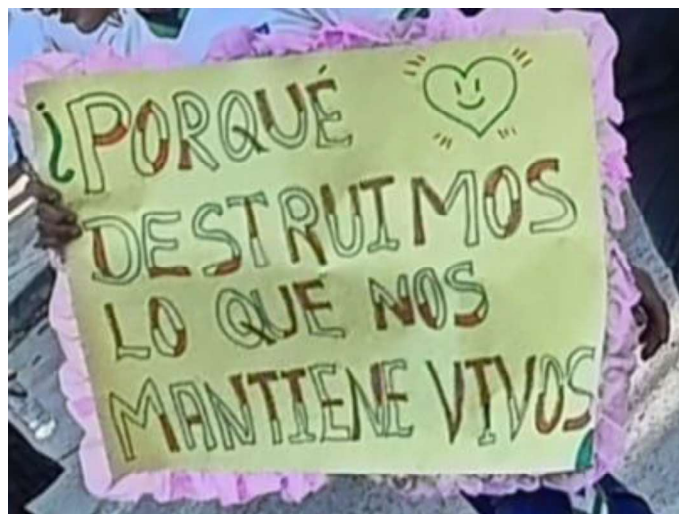 ¿PORQUÉ
DESTRUIMOS
LO QUE NOS
MANTIENE VIVOS